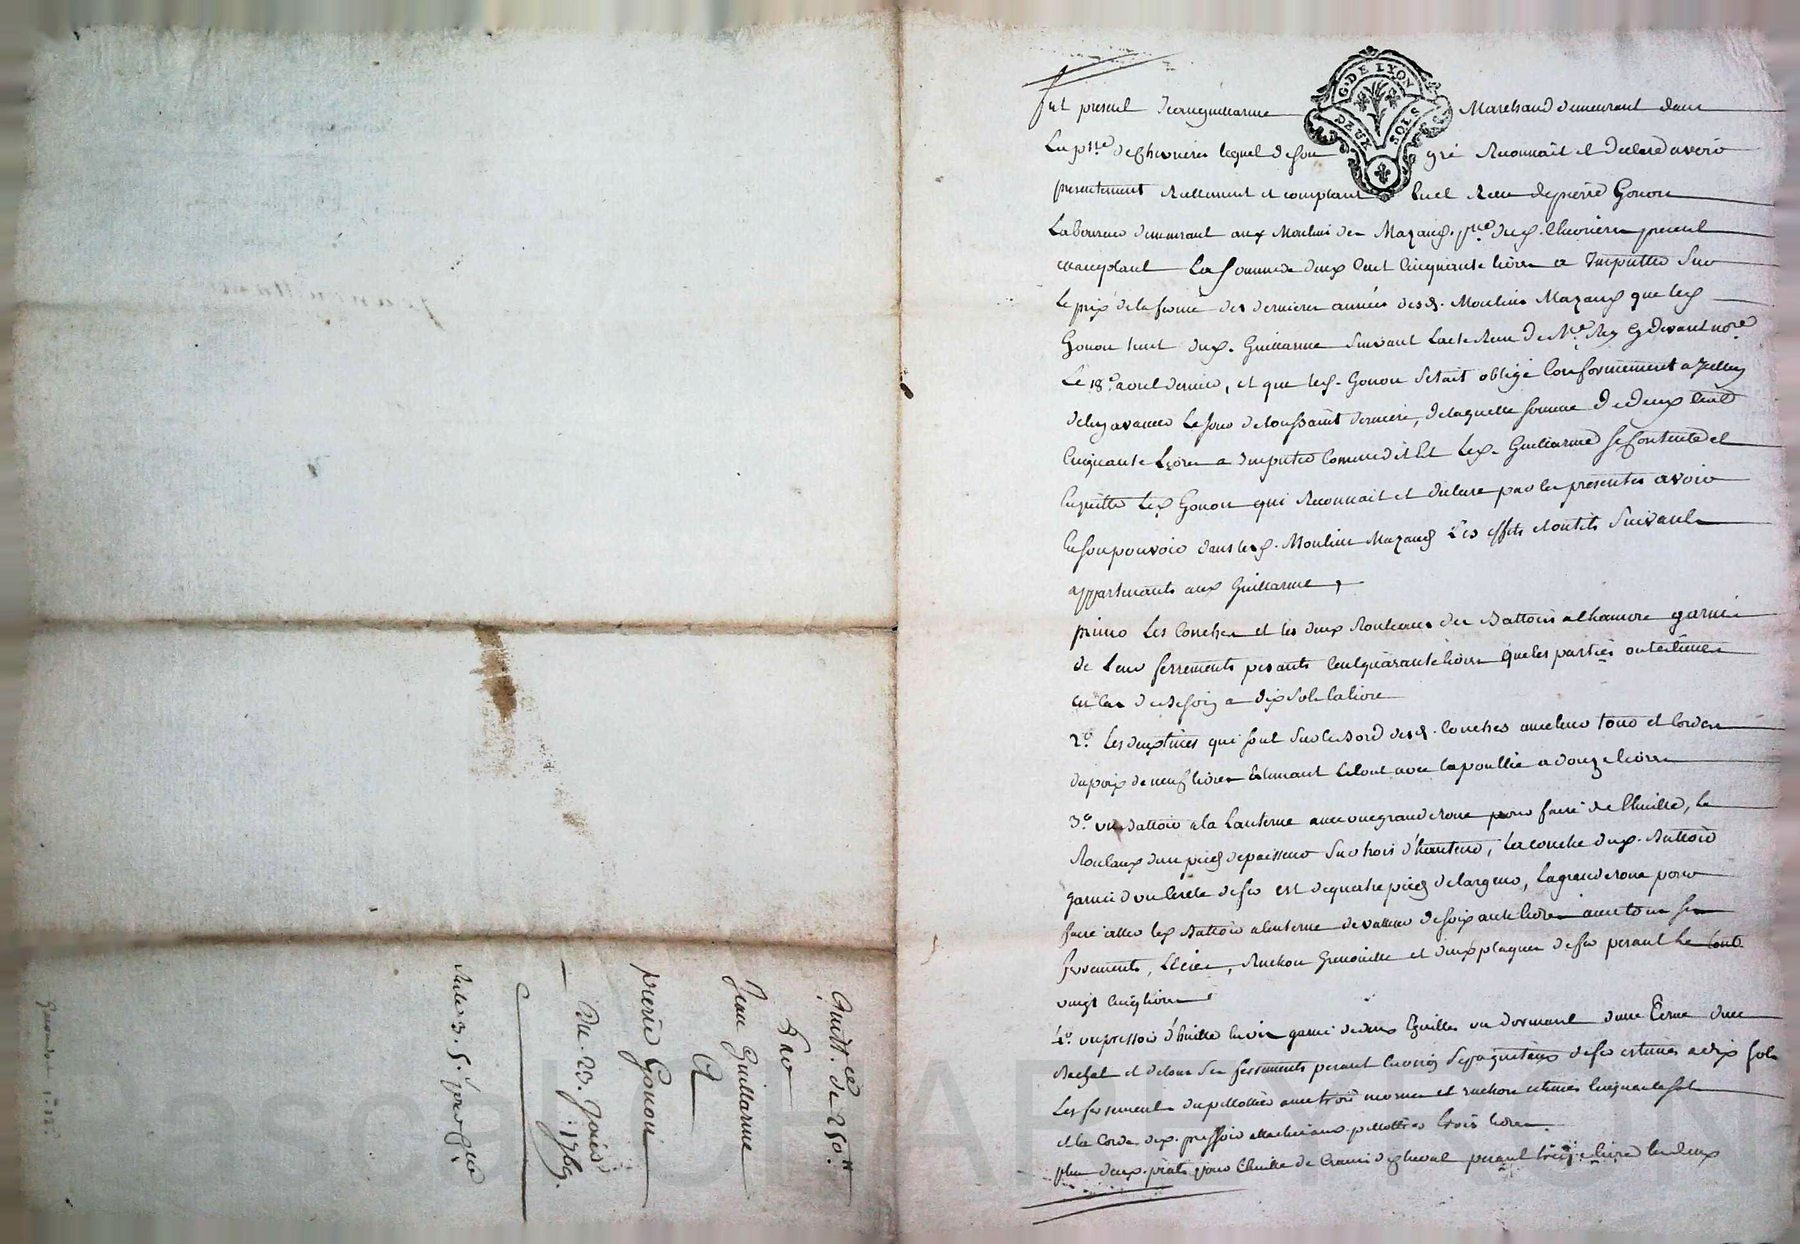 G. DE LYON
DEUX SOLS
fut present Jean guillarme Marchand demeurant dans
La p.sse de Chevrieres lequel de son gré Reconnaît et declare avoir
presentement Reellement et comptant Eu et Reçu de pierre Gonon
Laboureur demeurant aux Moulins des Mazaud. p.sse dud. Chevrieres present
acceptant La Somme de deux Cent Cinquante livres a Imputter Sur
Le prix de la ferme des dernieres années desd. Moulins Mazaud que led
Gonon tient dud. Guillarme Suivant L'acte Reçu de M.e Rey Cy devant no.re
Le 18.e avril dernier, et que led. Gonon S'etait obligé Conformement a Icelluy
de luy avancer Le jour de toussaint derniere, de laquelle somme De Deux Cent
Cinquante Livres a Imputter Comme dit Est Led. Guillarme se Contente et
En quitte Led Gonon qui Reconnait et declare par les presentes avoir
En son pouvoir dans lesd. Moulins Mazaud Les effets et outils Suivants
appartenants aud Guillarme,
primo Les Conches et les deux Rouleaux des Battoirs a Chanvre garnis
de Leurs ferrements pesants Cent quarante livres que les parties ont estimées
en Cas de Besoin a dix sols la livre
2.o Les deux tines qui sont Sur le Bord desd. Conches avec leur tour et Cordes
du poix de neuf livres Estimant Le tout avec la poullie a douze livres
3.o un Battoir a la Lanterne avec une grande roue pour faire de l'huille, Le
Roulaux d'un pied d'epaisseur Sur trois d'hauteur, La conche dud. Battoir
garni d'un Cercle de fer est de quatre pieds de largeur, La grande roue pour
faire aller led Battoir a lenterne de valleur de soixante livres avec tous ses
ferrements, Grenouille et deux plaques de fer pesant Le tout
vingt Cinq livres
4.o un pressoir d'huille garni de deux Eguilles un dormant d'une Ecrue d'un
et de tous Ses ferrements pesant de fer estimés a dix sols
Les ferrements avec trois et estimés Cinquante sols
et la Corde dud. pressoir trois livres
plus deux prats pour l'huille de Crains de cheval pesant livre les deux
Quitt.ce de 250 tt
par
Jean Guillarme
A
pierre Gonon
Du 23. Janvier
1769.